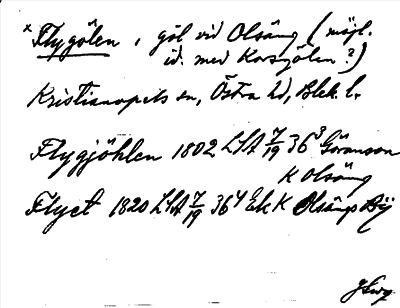 x Flygölen, göl vid Olsäng (möjl.
id. med Korsgölen?)
Kristianopels sn, Östra hd, Blek. l.
Flygjöhlen 1802 LSA 7/19 36³ Göranson
K Olsäng
Flyet 1820 LSA 7/19 36⁴ Ek K Olsängs By